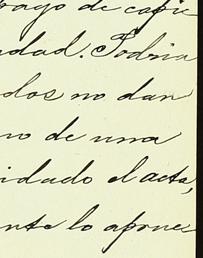 pago de copie
ndad. Podria
dos no dan
no de una
idado el acta,
nte lo aprue